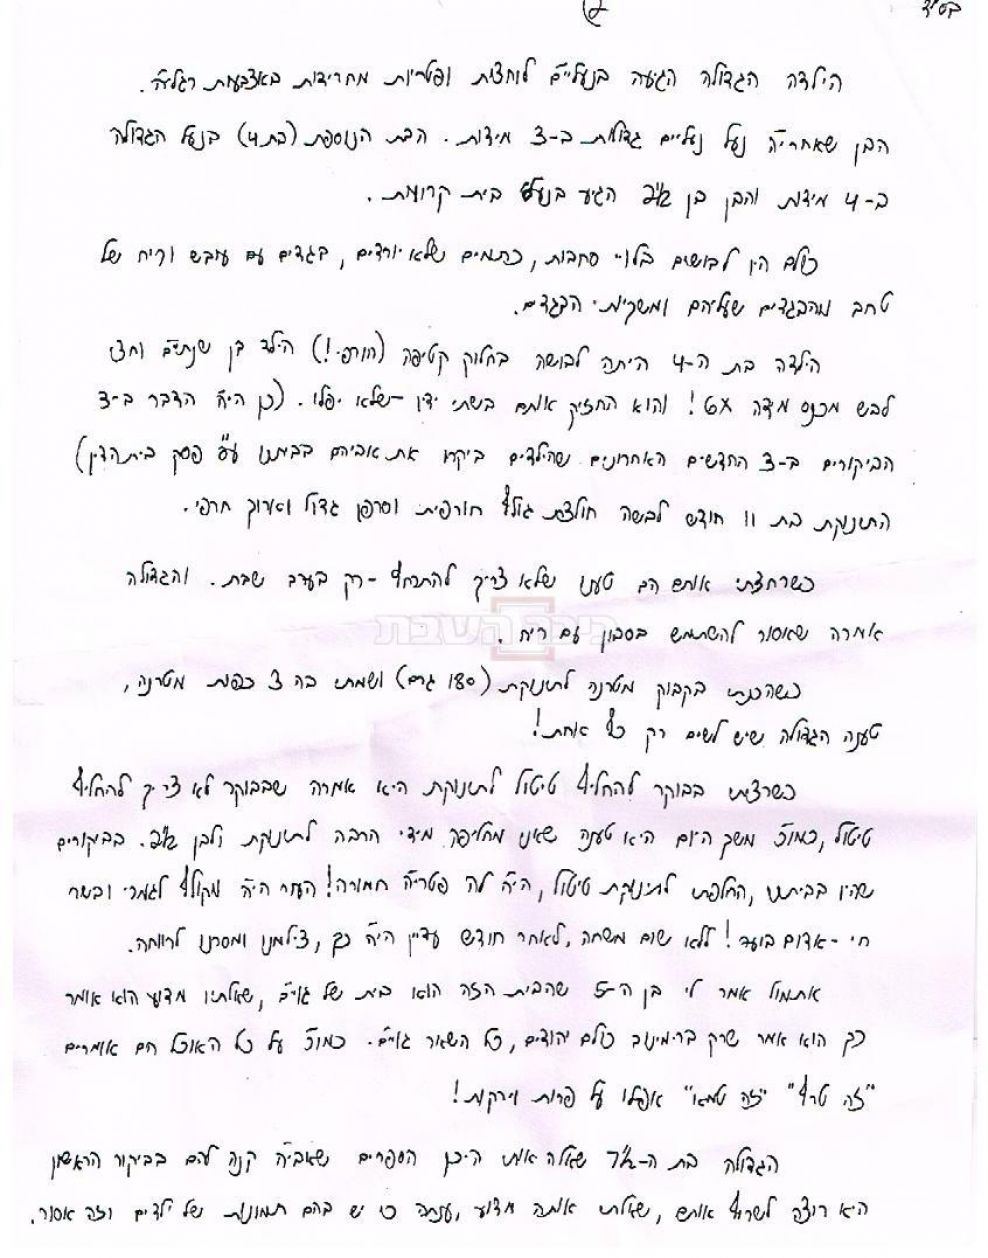 בס"ד
הילדה הגדולה הגיעה בנעליים לוחצות ופטריות מחרידות באצבעות רגליה.
הבן שאחריה נעל נעליים גדולות ב-3 מידות. הבת הנוספת (בת 4) בנעל הגדולה
ב-4 מידות והבן בן 2½ הגיע בנעלי בית קרועות.
כולם היו לבושים בלויי סחבות, כתמים שלא יורדים, בגדים עם עובש וריח של
טחב מהבגדים שעליהם ומשקיות הבגדים.
הילדה בת ה-4 היתה לבושה בחלוק קטיפה (חורפי!) הילד בן שנתיים וחצי
לבש מכנס מידה 6! והוא החזיק אותם בשתי ידיו - שלא יפלו. (כן היה הדבר ב-3
הביקורים ב-3 החדשים האחרונים שהילדים ביקרו את אביהם בביתנו עפ"י פסק ביתהדין)
התינוקת בת 11 חודש לבשה חולצת גולף חורפית וסרפן גדול וארוך חרפי.
כשרחצתי אותם הם טענו שלא צריך להתרחץ - רק בערב שבת. והגדולה
אמרה שאסור להשתמש בסבון עם ריח.
כיכר השבת
כשהכנתי בקבוק מטרנה לתינוקת (180 גרם) ושמתי בה 3 כפות מטרנה,
טענה הגדולה שיש לשים רק כף אחת!
כשרציתי בבוקר להחליף טיטול לתינוקת היא אמרה שבבוקר לא צריך להחליף
טיטול, כמו"כ משך היום היא טענה שאני מחליפה מידי הרבה לתינוקת ולבן 2½. בביקורים
שהיו בביתנו, החלפתי לתינוקת טיטול, היה לה פטריה חמורה! העור היה מקולף לגמרי ובשר
חי - אדום בוער! ללא שום משחה, לאחר חודש עדיין היה כך, צילמנו ומסרנו לרווחה.
אתמול אמר לי בן ה-5 שהבית הזה הוא בית של גויים, שאלתיו מדוע הוא אומר
כך הוא אמר שרק ברימינוב כולם יהודים, כל השאר גויים. כמו"כ על כל האוכל הם אומרים
"זה טרף" "זה טמא" אפילו על פרות וירקות!
הגדולה בת ה-7½ שאלה אותי היכן הספרים שאביה קנה להם בביקור הראשון
היא רוצה לשרוף אותם, שאלתי אותה מדוע, ענתה כי יש בהם תמונות של ילדים וזה אסור.